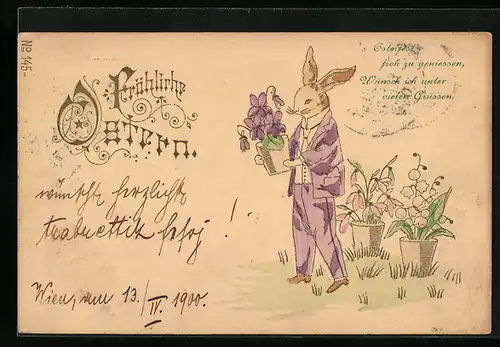 No 145-
's Osterfest
froh zu geniessen,
Wünsch ich unter
vielen Grüssen.
Fröhliche
Ostern.
wünscht herzlichst
!
Wien, am 13./IV. 1900.